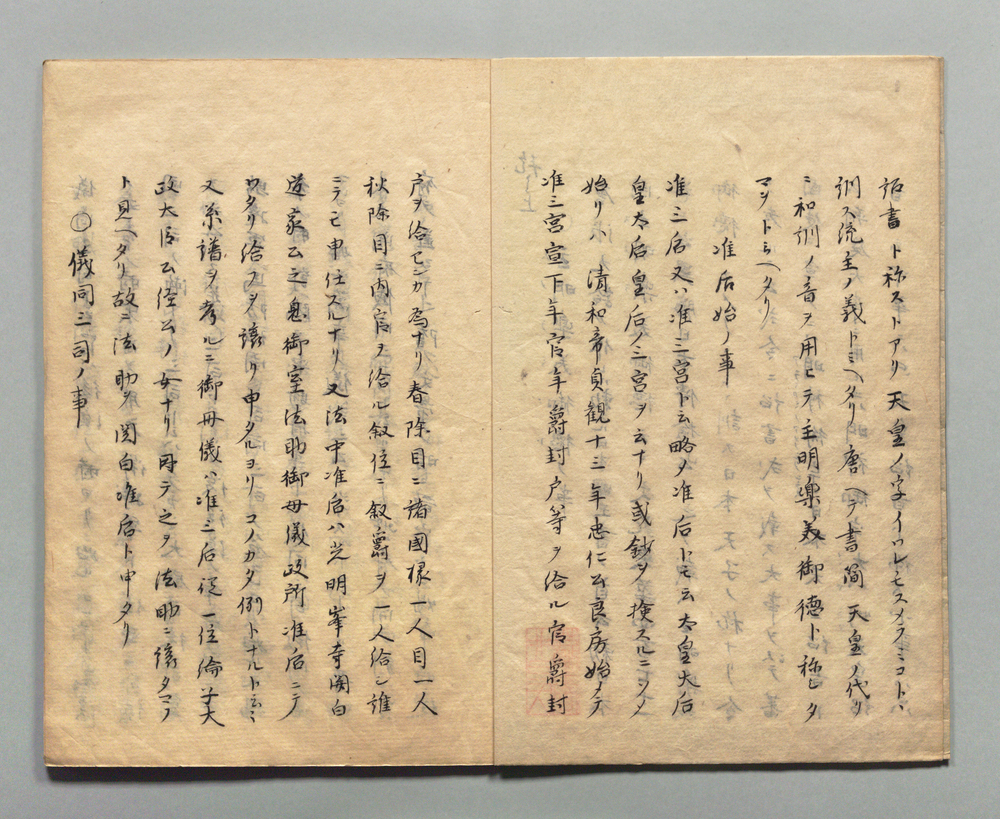 詔書ト称ストアリ天皇ノ字イツレモスメラミコトヽ
訓ス統主ノ義トミヘタリ唐ヘノ書簡天皇ノ代リ
ニ和訓ノ音ヲ用ヒテ主明楽美御徳ト称シタ
マフトミヘタリ
准后始ノ事
准三后又ハ准三宮ト云略メ准后トモ云太皇大后
皇太后皇后ノ三宮ヲ云ナリ或鈔ヲ検スルニソノ
始リト清和帝貞観十三年忠仁公良房始メテ
准三宮宣下年官年爵封戸等ヲ給ル官爵封
戸ヲ給センカ為ナリ春除目ニ諸國掾一人目一人
秋除目ニ内官ヲ給ル叙位ニ叙爵ヲ一人給シ誰
ニテモ申任スルナリ又法中准后ハ光明峯寺関白
道家公之息御室法助御母儀政所准后ニテ
ワタリ給フヲ譲リ申タルヨリコノカタ例トナルト云ミ
又系譜ヲ考ルニ御母儀ハ准三后従一位倫子太
政大臣公経公ノ女ナリ因テ之ヲ法助ニ譲タマフ
ト見ヘタリ故ニ法助ヲ関白准后ト申タリ
〇儀同三司ノ事